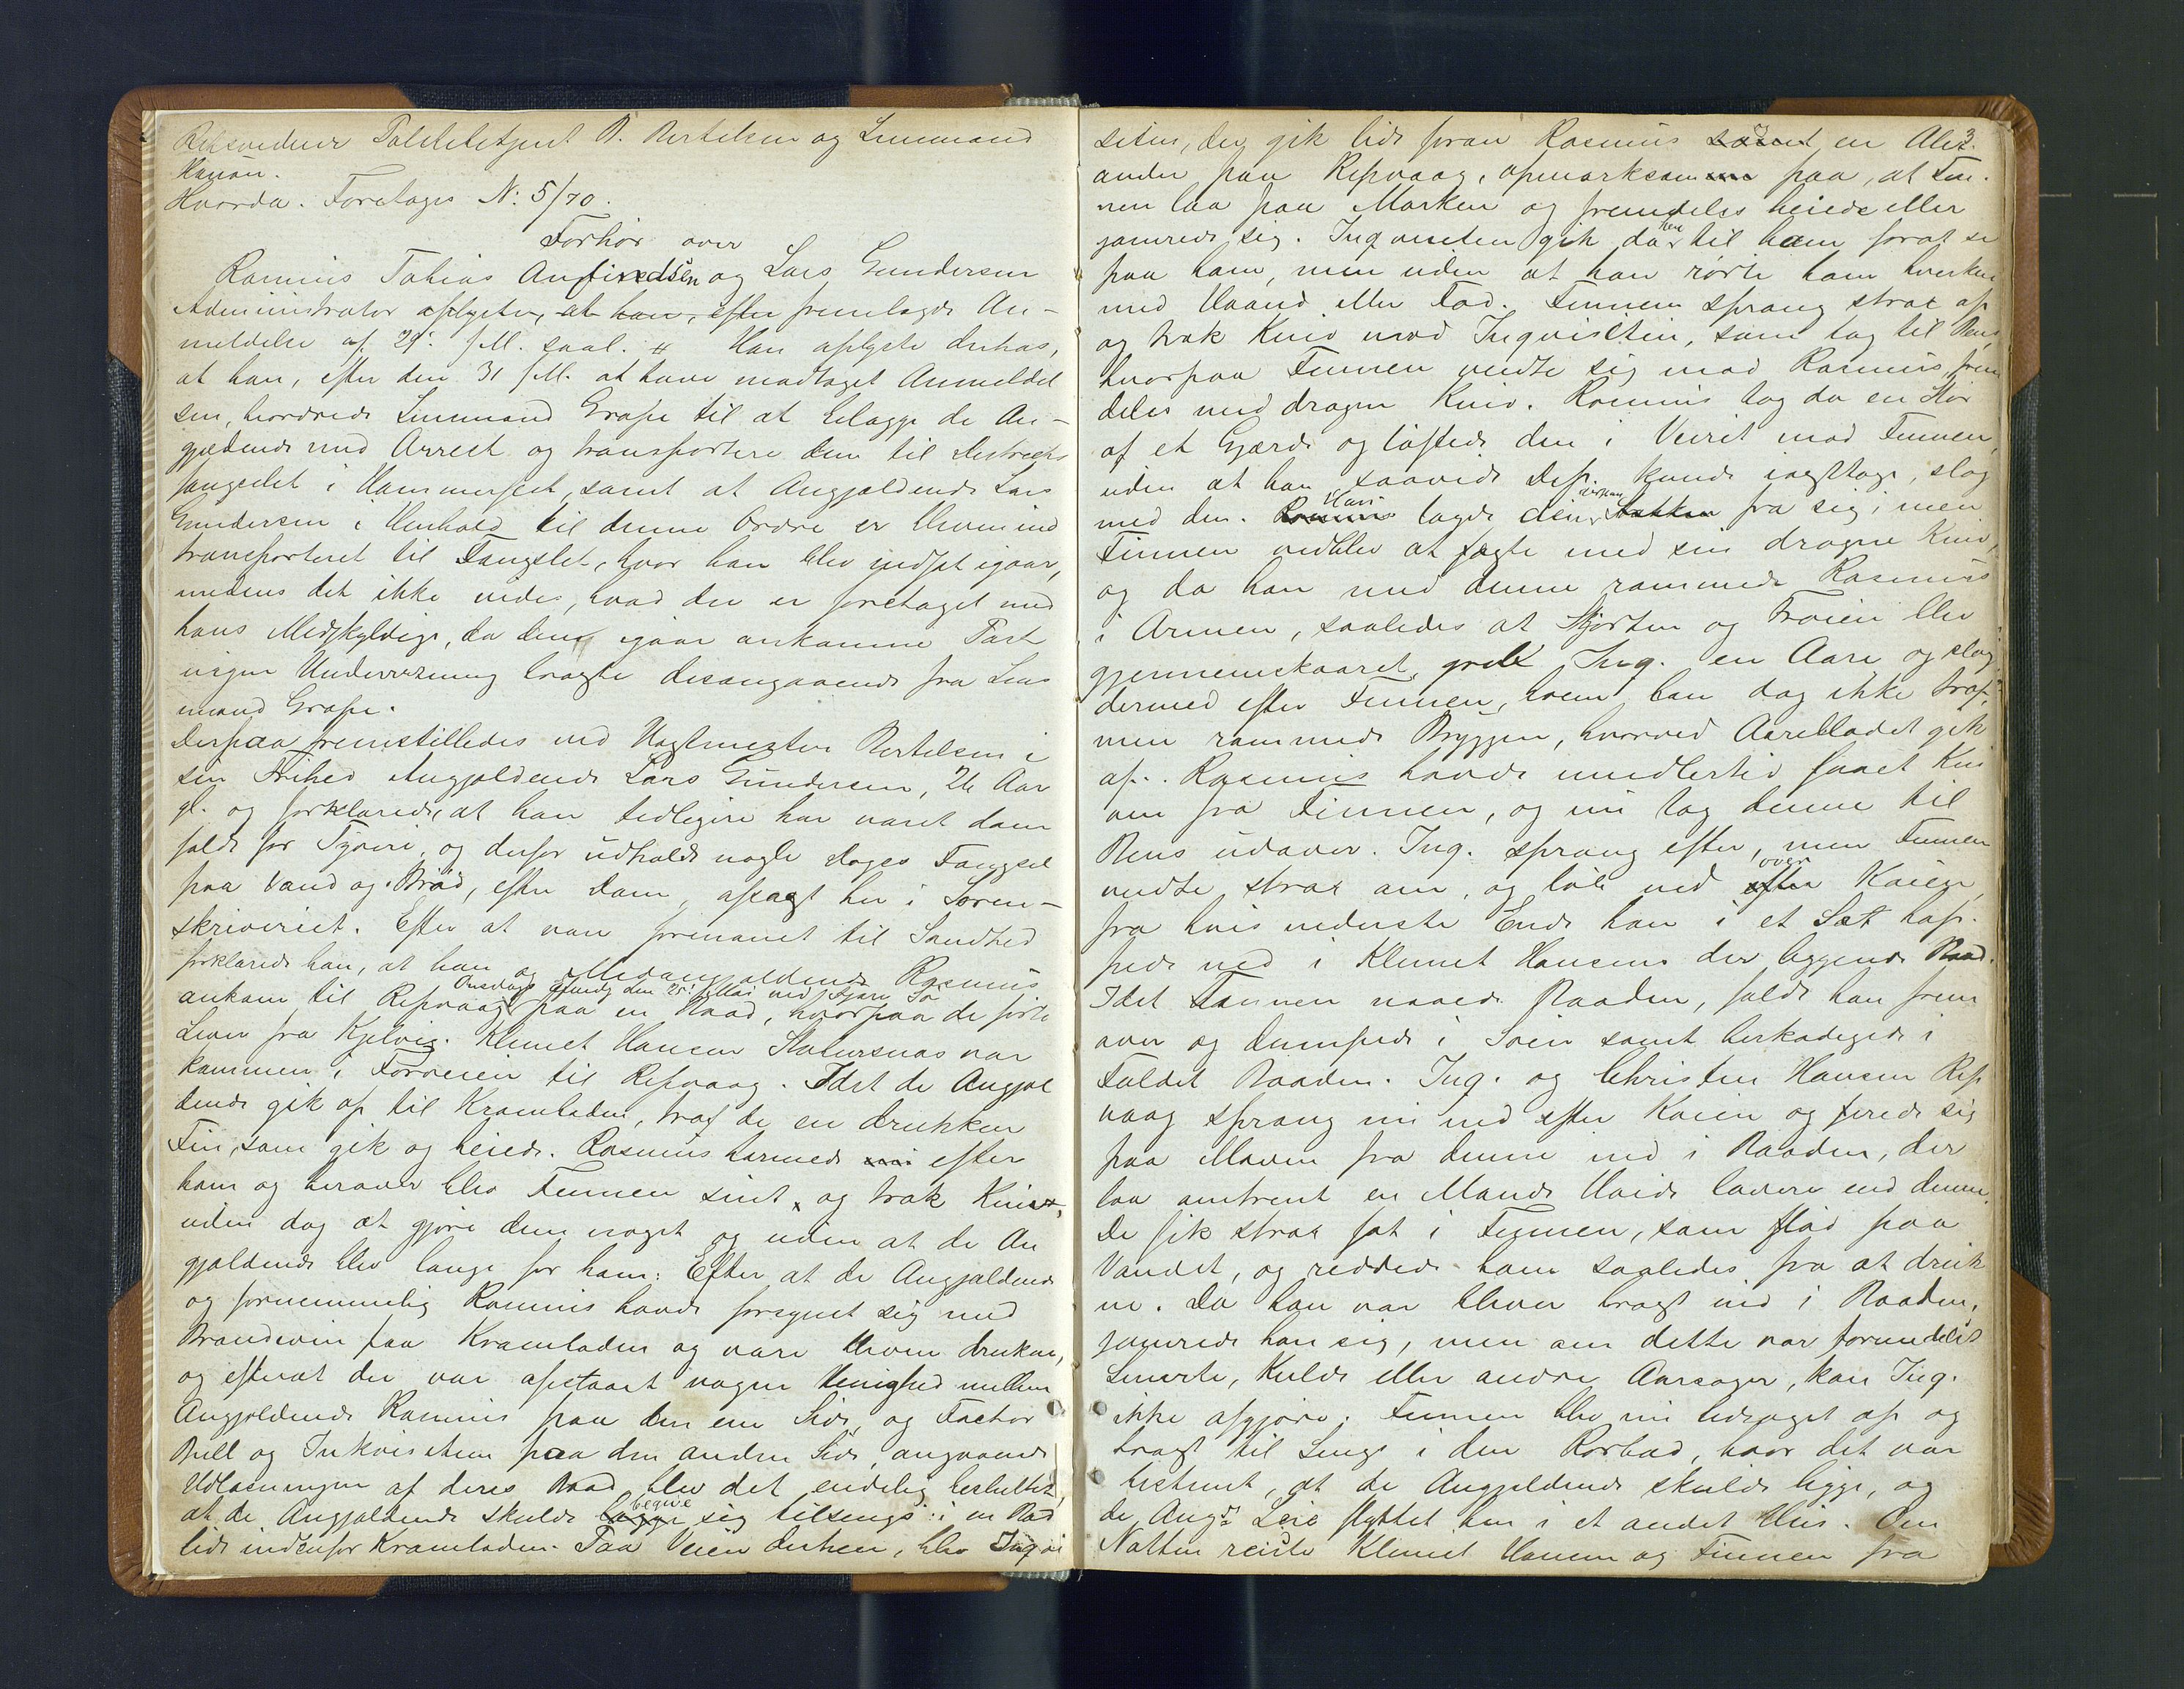 Retsvidner Politibetjent B. Bertelsen og Lensmand
Hanøn.
Hvorda. Foretoges N: 5/70.
Forhør over
Rasmus Tobias Anfindsen og Lars Gundersen
Administrator oplyste, at han, efter fremlagde An-
meldelse af 29: f.M. saal. # Han oplyste derhos,
at han, efter den 31 f.M. at have modtaget Anmeldel
sen, beordrede Lensmand Grape til at belægge de An-
gjældende med Arrest og transportere dem til Distrikts
fængslet i Hammerfest, samt at Angjældende Lars
Gundersen i Henhold til denne Ordre er bleven ind
transporteret til Fængslet, hvor han blev indsat igaar,
medens det ikke vides, hvad der er foretaget med
hans Medskyldige, da den igaar ankomne Post
ingen Underretning bragte desangaaende fra Lens
mand Grape.
Derpaa fremstilledes ved Vagtmester Bertelsen i
sin Frihed Angjældende Lars Gundersen, 26 Aar
gl. og forklarede, at han tidligere har været dom
fældt for Tyveri, og derfor udholdt nogle Dages Fængsel
paa Vand og Brød, efter Dom, afsagt her i Soren-
skriveriet. Efter at være formanet til Sandhed
forklarede han, at han og Medangjældende Rasmus
Onsdags Eftmdg den 25: Mai ved
ankom til Repvaag paa en Baad, hvorpaa de førte
Lever fra Kjelvig. Klemet Hansen Staburs­næs var
kommen i Forveien til Repvaag. Idet de Angjæl
dende gik op til Kramboden, traf de en drukken
Fin, som gik og heiede. Rasmus hermede efter
ham og herover blev Finnen sint, og trak Kniv,
uden dog at gjøre dem noget og uden at de An
gjældende blev bange for ham. Efter at de Angjældende
og fornemmelig Rasmus havde forsynet sig med
Brændevin paa Kramboden og vare bleven drukne,
og efterat der var opstaaet nogen Uenighed mellem
Angjældende Rasmus paa den ene Side, og Factor
Bull og Inkvisiten paa den anden Side, angaaende
Udlosningen af deres Baad blev det endelig besluttet,
begive
at de Angjældende skulde lægge sig tilsengs i en Bod
lidt indenfor Kramboden. Paa Veien derhen, blev Inqvi
3.
siten, der gik lidt foran Rasmus samt en Alex
ander paa Repvaag, opmærksom paa, at Fin-
nen laa paa Marken og fremdeles heiede eller
hen
jamrede sig. Inqvisiten gik da til ham forat se
paa ham, men uden at han rørte ham hverken
med Haand eller Fod. Finnen sprang strax op
og trak Kniv mod Inqvisiten, som tog til Bens,
hvorpaa Finnen vendte sig mod Rasmus, frem
deles med dragen Kniv. Rasmus tog da en Stør
af et Gjærde og løftede den i Veiret mod Finnen,
uden at han, saavidt Dep. kunde iagttage, slog
Han derpaa
med den. Rasmus lagde den Stokken fra sig, men
Finnen vedblev at fægte med sin dragne Kniv,
og da han med denne rammede Rasmus
i Armen, saaledes at Skjorten og Trøien blev
gjennemskaaret, greb Inq. en Aare og slog
dermed efter Finnen, hvem han dog ikke traf,
men rammede Bryggen, hvorved Aarebladet gik
af. Rasmus havde imidlertid faaet Kni
ven fra Finnen, og nu tog denne til
Bens udover. Inq. sprang efter, men Finnen
over
vendte strax om, og løb ned efter Kaien,
fra hvis nederste Ende han i et Sæt hop-
pede ned i Klemet Hansens der liggende Baad.
Idet Finnen naaede Baaden, faldt han frem
over og dumpede i Søen samt beskadigede i
Faldet Baaden. Inq. og Christen Hansen Rep
vaag sprang nu ned efter Kaien og firede sig
paa Maven fra denne ned i Baaden, der
laa omtrent en Mands Høide lavere end denne.
De fik strax fat i Finnen, som flød paa
Vandet, og reddede ham saaledes fra at druk
ne. Da han var bleven bragt ind i Baaden,
jamrede han sig, men om dette var formedelst
Smerte, Kulde eller andre Aarsager, kan Inq.
ikke afgjøre. Finnen blev nu ledsaget op og
bragt til Sengs i den Rorbod, hvor det var
bestemt, at de Angjældende skulde ligge, og
de Angs Leie flyttet hen i et andet Hus. Om
Natten reiste Klemet Hansen og Finnen fra